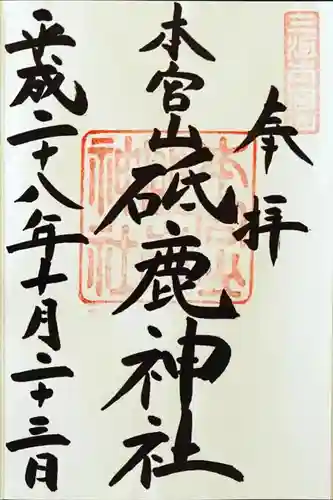 奉拝
本宮山砥鹿神社
平成二十八年十月二十三日